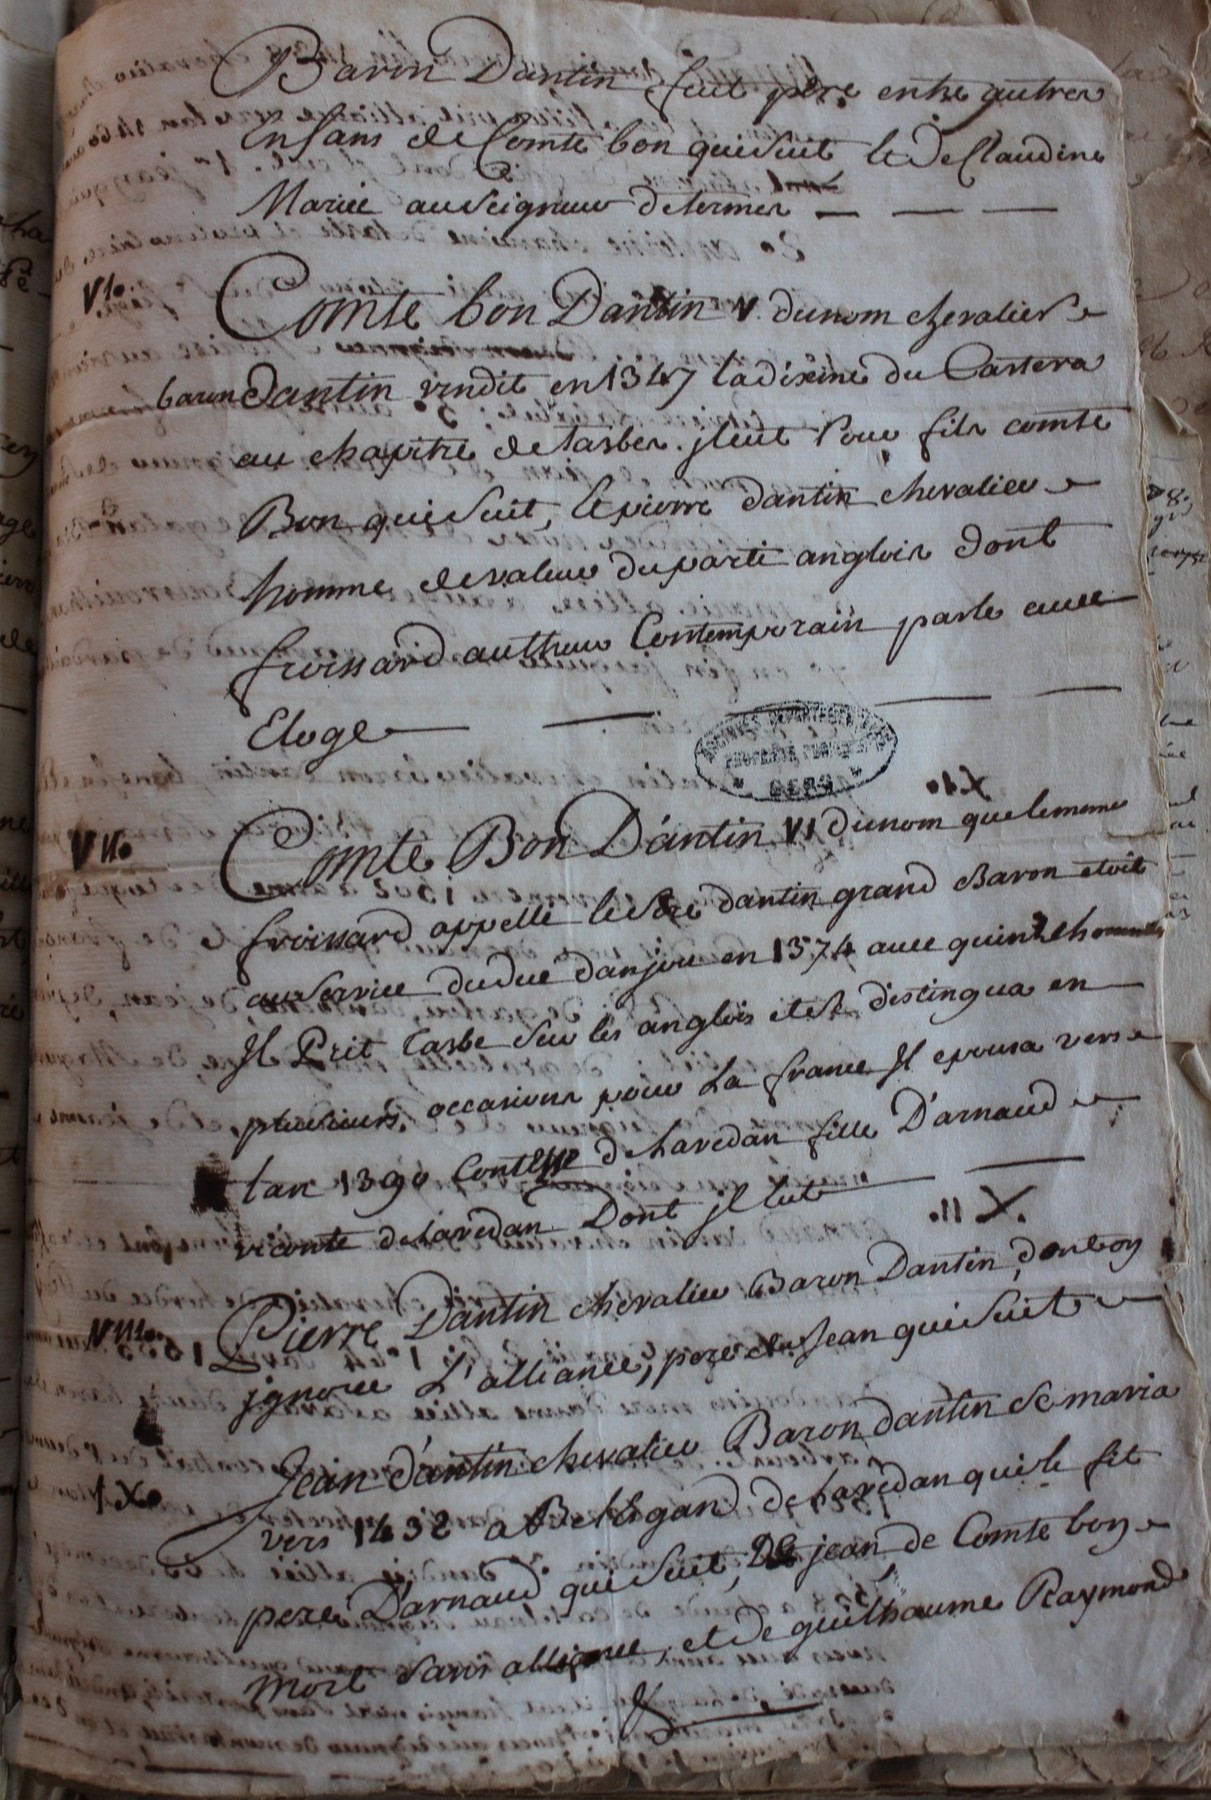 Baron Dantin fut pere entre autres
Enfans de Comte bon qui suit et de Claudine
Mariée au seigneur de termes — — —
VI.
Comte bon Dantin V. du nom chevalier
baron dantin vendit en 1347 la dixme du Cartera
au chapitre de tarbes. jl eut Pour fils comte
Bon qui suit, et pierre dantin chevalier
homme de valeur du parti anglois dont
froissard autheur Contemporain parle avec
Eloge
ARCHIVES DEPARTEMENTALES
PROPRIÉTÉ PUBLIQUE
GERS
VII.
Comte Bon D'antin VI du nom que le meme
froissard appelle le sire dantin grand Baron etoit
au service du duc danjou en 1374 avec quinze hommes
Il Prit tarbe sur les anglois et se distingua en
plusieurs occasions pour la france Il epousa vers
lan 1390 Contesse de lavedan fille D'arnaud
viconte de lavedan Dont jl eut
VIII.
Pierre Dantin chevalier Baron Dantin, dont on
jgnore L'alliance, pere de Jean qui suit
IX.
Jean d'antin chevalier Baron dantin se maria
vers 1432 a Bellegard de lavedan qui le fit
pere D'arnaud qui suit, De jean, de Comte bon
mort sans alliance, et de guilhaume Raymond